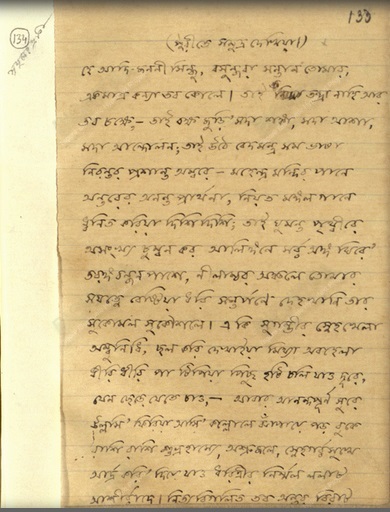 133
134
(পুরীতে সমুদ্র দেখিয়া।)
হে আদিজননী সিন্ধু, বসুন্ধরা সন্তান তোমার,
একমাত্র কন্যা তব কোলে। তাই তন্দ্রা নাহি আর
তব চক্ষে,— তাই বক্ষ জুড়ি সদা শঙ্কা, সদা আশা,
সদা আন্দোলন; তাই উঠে বেদমন্ত্র সম ভাষা
নিরন্তর প্রশান্ত অম্বরে— মহেন্দ্র মন্দির পানে
অন্তরের অনন্ত প্রার্থনা, নিয়ত মঙ্গল গানে
ধ্বনিত করিয়া দিশি দিশি; তাই ঘুমন্ত পৃথ্বীরে
অসংখ্য চুম্বন কর আলিঙ্গনে সর্ব্ব অঙ্গ ঘিরে
তরঙ্গবন্ধনে বাঁধি, নীলাম্বর অঞ্চলে তোমার
সযত্নে বেষ্টিয়া ধরি সন্তর্পণে দেহখানি তার
সুকোমল সুকৌশলে। এ কি সুগম্ভীর স্নেহখেলা
অম্বুনিধি, ছল করি দেখাইয়া মিথ্যা অবহেলা
ধীরি ধীরি পা টিপিয়া পিছু হটি চলি যাও দূরে,
যেন ছেড়ে যেতে চাও,— আবার আনন্দপূর্ণ সুরে
উল্লসি ফিরিয়া আসি কল্লোলে ঝাঁপায়ে পড় বুকে
রাশি রাশি শুভ্রহাস্যে, অশ্রুজলে, স্নেহগর্ব্বসুখে
আর্দ্র করি দিয়ে যাও ধরিত্রীর নির্ম্মল ললাট
আশীর্ব্বাদে। নিত্যবিগলিত তব অন্তর বিরাট